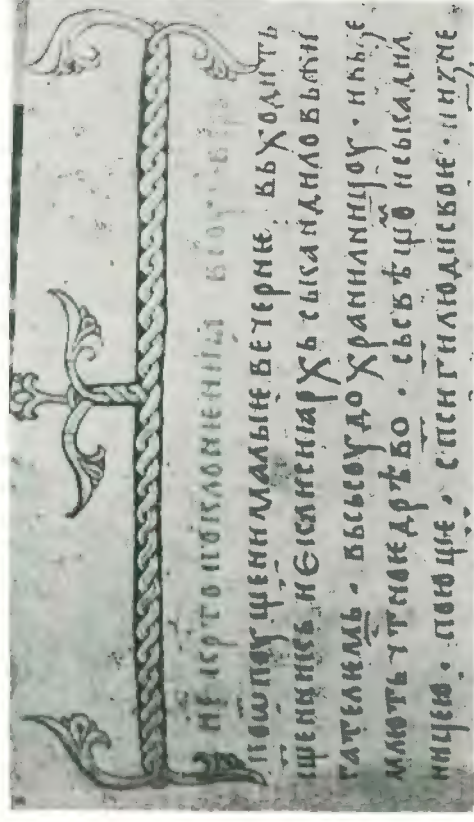 НЕ КРТО ПОКЛОНѤННЫ
ПОѠПОУЩЕНИ МАЛЫѤ ВЕЧЕРНѤ ВЬХОДИТЬ
ЩЕННИКЬ И ЕКЛИСИАРХЬ СЬ КАНДИЛОВЬЖИ
ГАТЕЛѤМЬ · ВЬСЬСОУДОХРАНИЛНИЦОУ · И ВЬЗЕ
МЛЮТЬ ЧТНОѤ ДРѢВО · СЬСВѢЩѠ И СЬКАДИЛ
НИЦЕЮ · ПОЮЩЕ · СПСИ ГИ ЛЮДИ СВОѤ · И НИЗНЕ